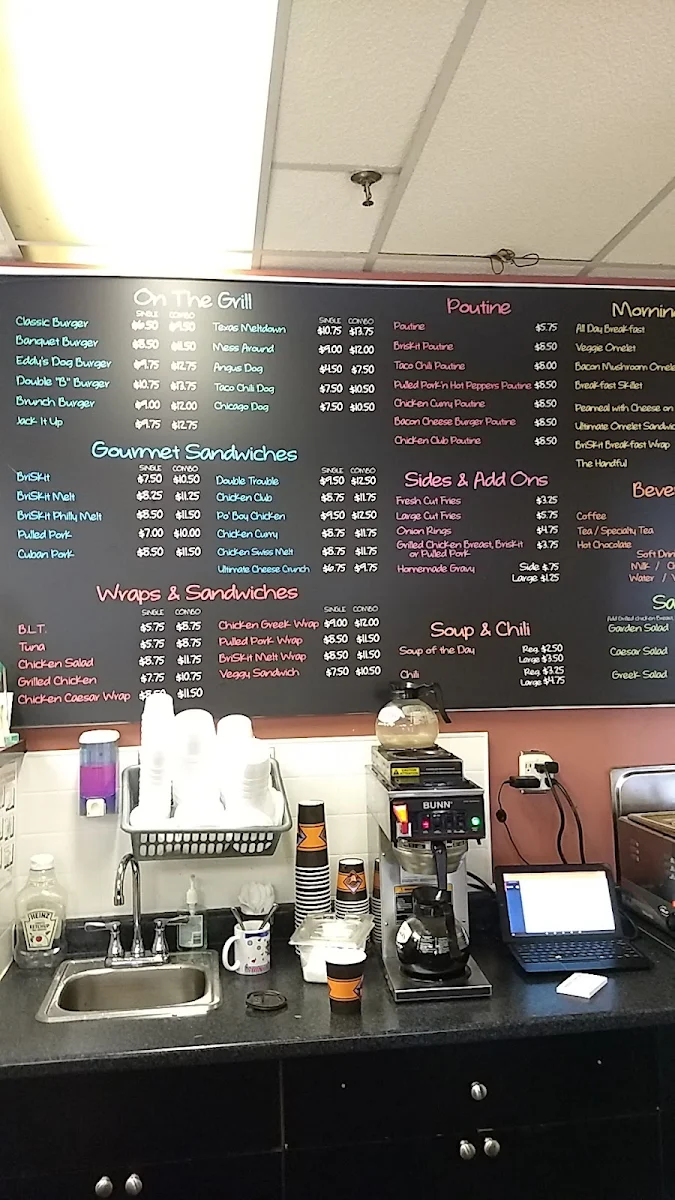 On The Grill
SINGLE COMBO
Classic Burger $6.50 $9.50
Banquet Burger $8.50 $11.50
Eddy's Dog Burger $9.75 $12.75
Double "B" Burger $10.75 $13.75
Brunch Burger $9.00 $12.00
Jack It Up $9.75 $12.75
SINGLE COMBO
Texas Meltdown $10.75 $13.75
Mess Around $9.00 $12.00
Angus Dog $4.50 $7.50
Taco Chili Dog $7.50 $10.50
Chicago Dog $7.50 $10.50
Gourmet Sandwiches
SINGLE COMBO
BriSKit $7.50 $10.50
BriSKit Melt $8.25 $11.25
BriSKit Philly Melt $8.50 $11.50
Pulled Pork $7.00 $10.00
Cuban Pork $8.50 $11.50
SINGLE COMBO
Double Trouble $9.50 $12.50
Chicken Club $8.75 $11.75
Po' Boy Chicken $9.50 $12.50
Chicken Curry $8.75 $11.75
Chicken Swiss Melt $8.75 $11.75
Ultimate Cheese Crunch $6.75 $9.75
Wraps & Sandwiches
SINGLE COMBO
B.L.T. $5.75 $8.75
Tuna $5.75 $8.75
Chicken Salad $8.75 $11.75
Grilled Chicken $7.75 $10.75
Chicken Caesar Wrap $8.50 $11.50
SINGLE COMBO
Chicken Greek Wrap $9.00 $12.00
Pulled Pork Wrap $8.50 $11.50
BriSKit Melt Wrap $8.50 $11.50
Veggy Sandwich $7.50 $10.50
Poutine
Poutine $5.75
BriSKit Poutine $8.50
Taco Chili Poutine $8.00
Pulled Pork'n Hot Peppers Poutine $8.50
Chicken Curry Poutine $8.50
Bacon Cheese Burger Poutine $8.50
Chicken Club Poutine $8.50
Sides & Add Ons
Fresh Cut Fries $3.25
Large Cut Fries $5.75
Onion Rings $4.75
Grilled Chicken Breast, BriSKit $3.75
or Pulled Pork
Homemade Gravy Side $.75
Large $1.25
Soup & Chili
Soup of the Day Reg. $2.50
Large $3.50
Chili Reg. $3.25
Large $4.75
Mornin
All Day Breakfast
Veggie Omelet
Bacon Mushroom Omele
Breakfast Skillet
Peameal with Cheese on
Ultimate Omelet Sandwic
BriSKit Breakfast Wrap
The Handful
Beve
Coffee
Tea / Specialty Tea
Hot Chocolate
Soft Drin
Milk / Ch
Water / V
Sa
Add Grilled Chicken Breast,
Garden Salad
Caesar Salad
Greek Salad
CAUTION
BUNN
HEINZ
KETCHUP